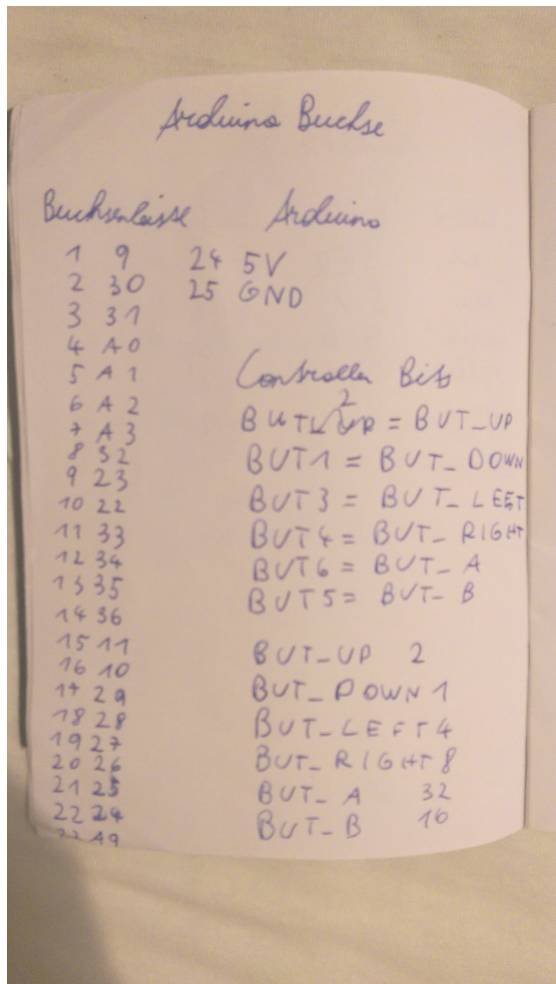 Arduino Buchse
Buchsenleiste Arduino
1 9 24 5V
2 30 25 GND
3 31
4 A0
5 A1
6 A2
7 A3
8 32
9 23
10 22
11 33
12 34
13 35
14 36
15 11
16 10
17 29
18 28
19 27
20 26
21 25
22 24
23 A9
Controller Bits
2 = BUT_UP
BUT1 = BUT_DOWN
BUT3 = BUT_LEFT
BUT4 = BUT_RIGHT
BUT6 = BUT_A
BUT5 = BUT_B
BUT_UP 2
BUT_DOWN 1
BUT_LEFT 4
BUT_RIGHT 8
BUT_A 32
BUT_B 16